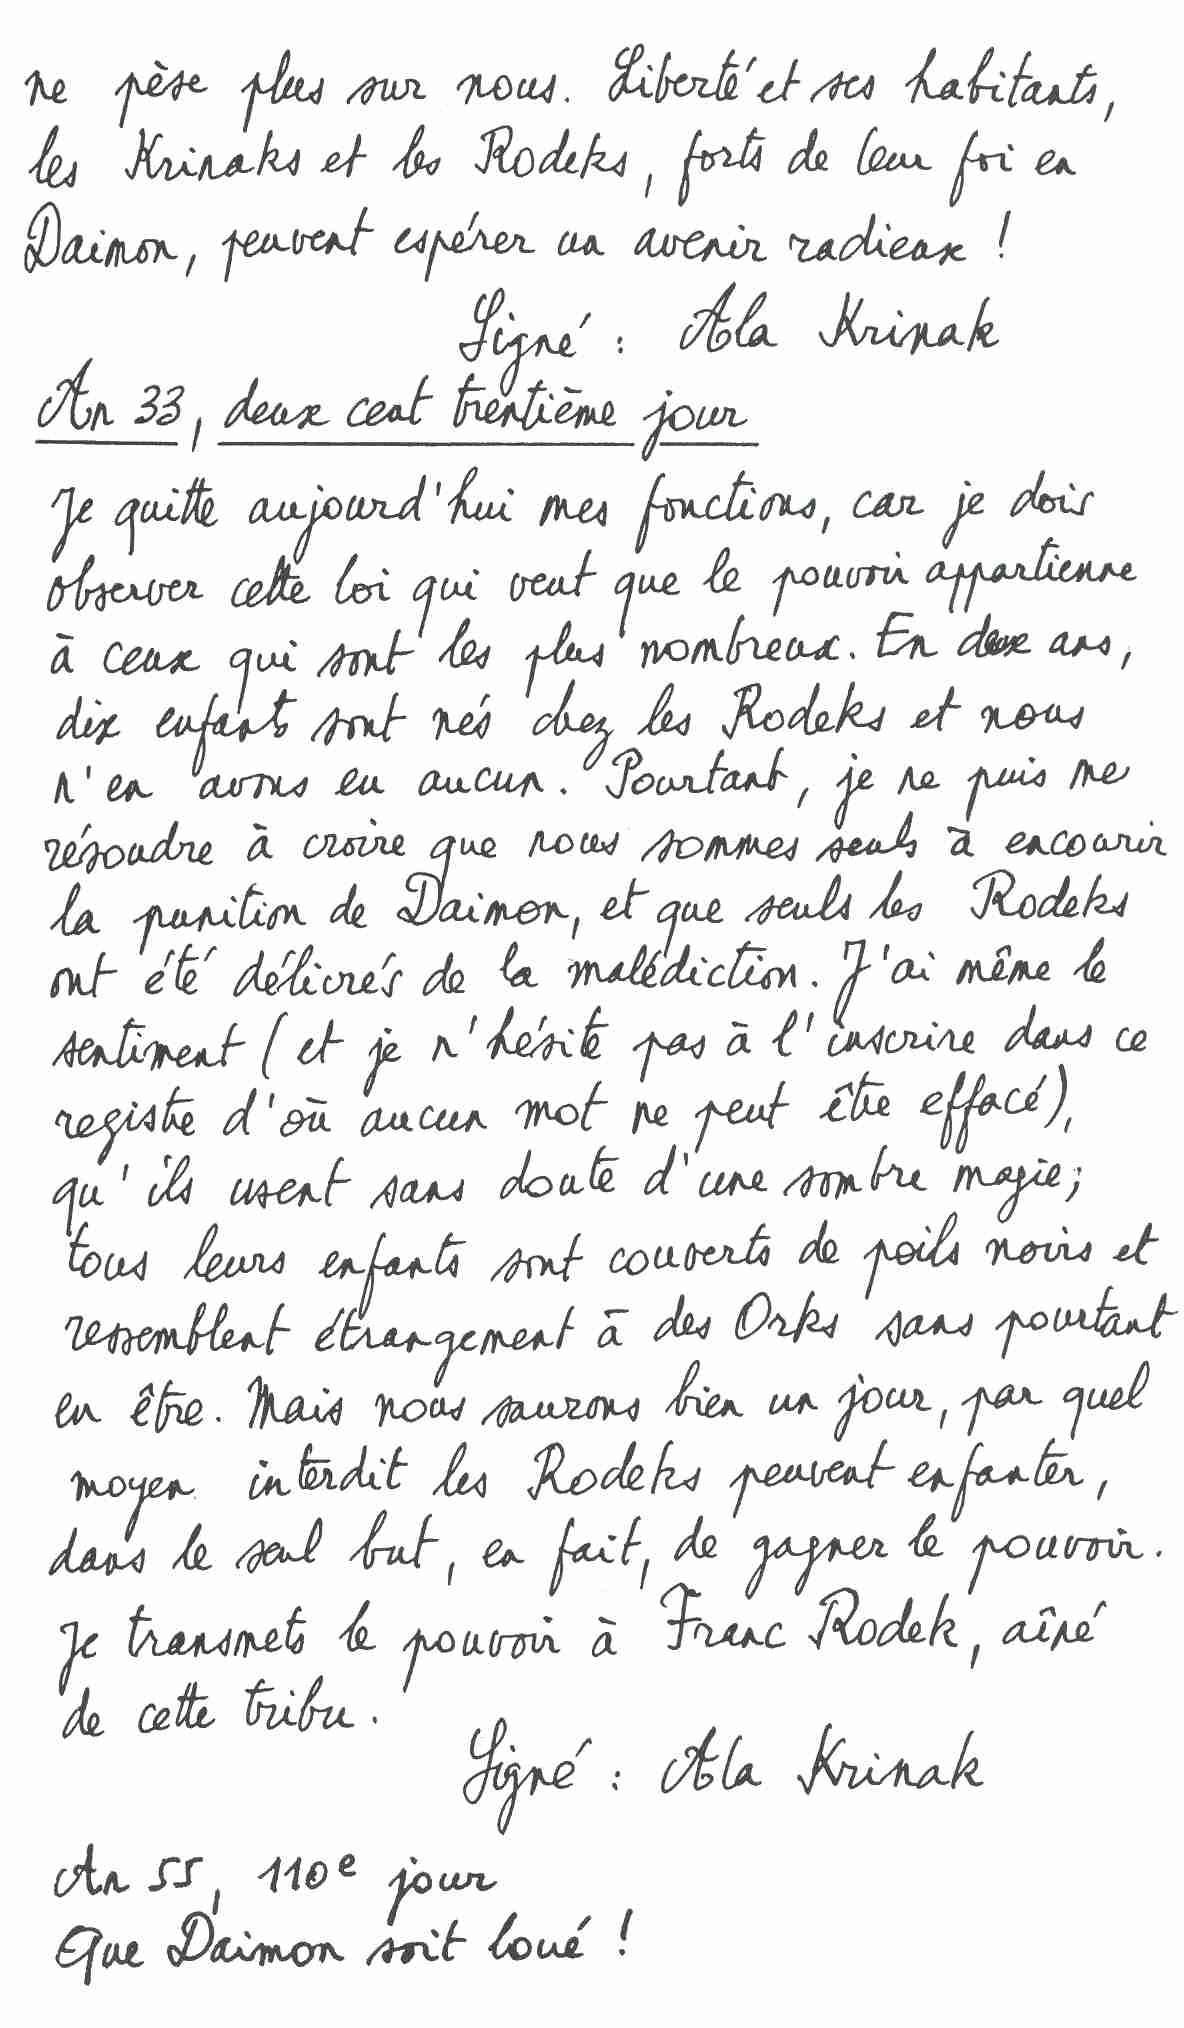 ne pèse plus sur nous. Liberté et ses habitants,
les Krinaks et les Rodeks, forts de leur foi en
Daimon, peuvent espérer un avenir radieux !
Signé : Ala Krinak
An 33, deux cent trentième jour
Je quitte aujourd'hui mes fonctions, car je dois
observer cette loi qui veut que le pouvoir appartienne
à ceux qui sont les plus nombreux. En deux ans,
dix enfants sont nés chez les Rodeks et nous
n'en avons eu aucun. Pourtant, je ne puis me
résoudre à croire que nous sommes seuls à encourir
la punition de Daimon, et que seuls les Rodeks
ont été délivrés de la malédiction. J'ai même le
sentiment (et je n'hésite pas à l'inscrire dans ce
registre d'où aucun mot ne peut être effacé),
qu'ils usent sans doute d'une sombre magie ;
tous leurs enfants sont couverts de poils noirs et
ressemblent étrangement à des Orks sans pourtant
en être. Mais nous saurons bien un jour, par quel
moyen interdit les Rodeks peuvent enfanter,
dans le seul but, en fait, de gagner le pouvoir.
Je transmets le pouvoir à Franc Rodek, aîné
de cette tribu.
Signé : Ala Krinak
An 55, 110e jour
Que Daimon soit loué !